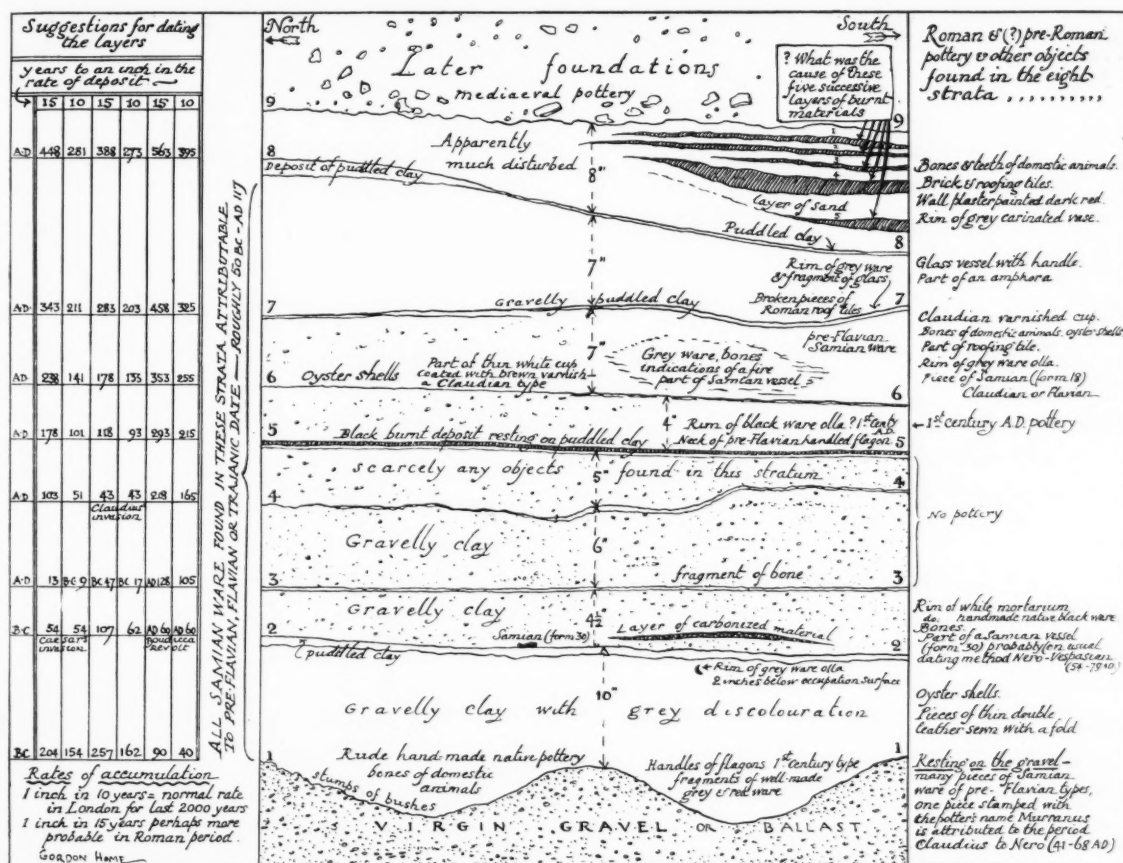 Suggestions for dating
the layers
years to an inch in the
rate of deposit
15 10 15 10 15 10
A.D 448 281 388 273 563 395
A.D. 343 211 283 203 458 325
A.D 238 141 178 135 353 255
A.D 178 101 118 93 293 215
A.D 103 51 43 43 218 165
Claudius'
invasion
A.D 13 B.C 9 BC 47 BC 17 AD 128 105
B.C 54 54 107 62 AD 60 AD 60
Caesar's
invasion
Boudicca
revolt
BC 204 154 257 162 90 40
Rates of accumulation
1 inch in 10 years = normal rate
in London for last 2000 years
1 inch in 15 years perhaps more
probable in Roman period.
GORDON HOME
ALL SAMIAN WARE FOUND IN THESE STRATA ATTRIBUTABLE
TO PRE-FLAVIAN, FLAVIAN OR TRAJANIC DATE — ROUGHLY 50 BC - AD 117
North
South
Later foundations
mediaeval pottery
? What was the
cause of these
five successive
layers of burnt
materials
9
9
1
2
3
4
5
Apparently
much disturbed
8"
8
Deposit of puddled clay
layer of sand
Puddled clay
8
7"
Rim of grey ware
& fragment of glass
Broken pieces of
Roman roof tiles
7
Gravelly puddled clay
7
pre-Flavian
Samian ware
7"
Grey ware, bones
indications of a fire
part of Samian vessel
Part of thin white cup
coated with brown varnish
a Claudian type
6 Oyster shells
6
4"
Rim of black ware olla ? 1st centy
A.D.
Neck of pre-Flavian handled flagon
5
Black burnt deposit resting on puddled clay
5
scarcely any objects found in this stratum
5"
4
4
Gravelly clay
6"
fragment of bone
3
3
Gravelly clay
4½
Layer of carbonized material
Samian (form 30)
2
2
puddled clay
Rim of grey ware olla
2 inches below occupation surface
10"
Gravelly clay with grey discolouration
1
1
Rude hand-made native pottery
bones of domestic
animals
stumps of bushes
Handles of flagons 1st century type
fragments of well-made
grey & red ware
VIRGIN GRAVEL OR BALLAST
Roman & (?) pre-Roman
pottery & other objects
found in the eight
strata ..........
Bones & teeth of domestic animals.
Brick & roofing tiles.
Wall plaster painted dark red.
Rim of grey carinated vase.
Glass vessel with handle.
Part of an amphora
Claudian varnished cup.
Bones of domestic animals. oyster shells
Part of roofing tile.
Rim of grey ware olla.
Piece of Samian (form 18)
Claudian or Flavian
1st century A.D. pottery
No pottery
Rim of white mortarium
do. handmade native black ware
Bones.
Part of a Samian vessel
(form 30) probably (on usual
dating method Nero-Vespasian
(54-79 AD)
Oyster shells.
Pieces of thin double
leather sewn with a fold
Resting on the gravel-
many pieces of Samian
ware of pre-Flavian types,
one piece stamped with
the potter's name Murranus
is attributed to the period
Claudius to Nero (41-68 AD)